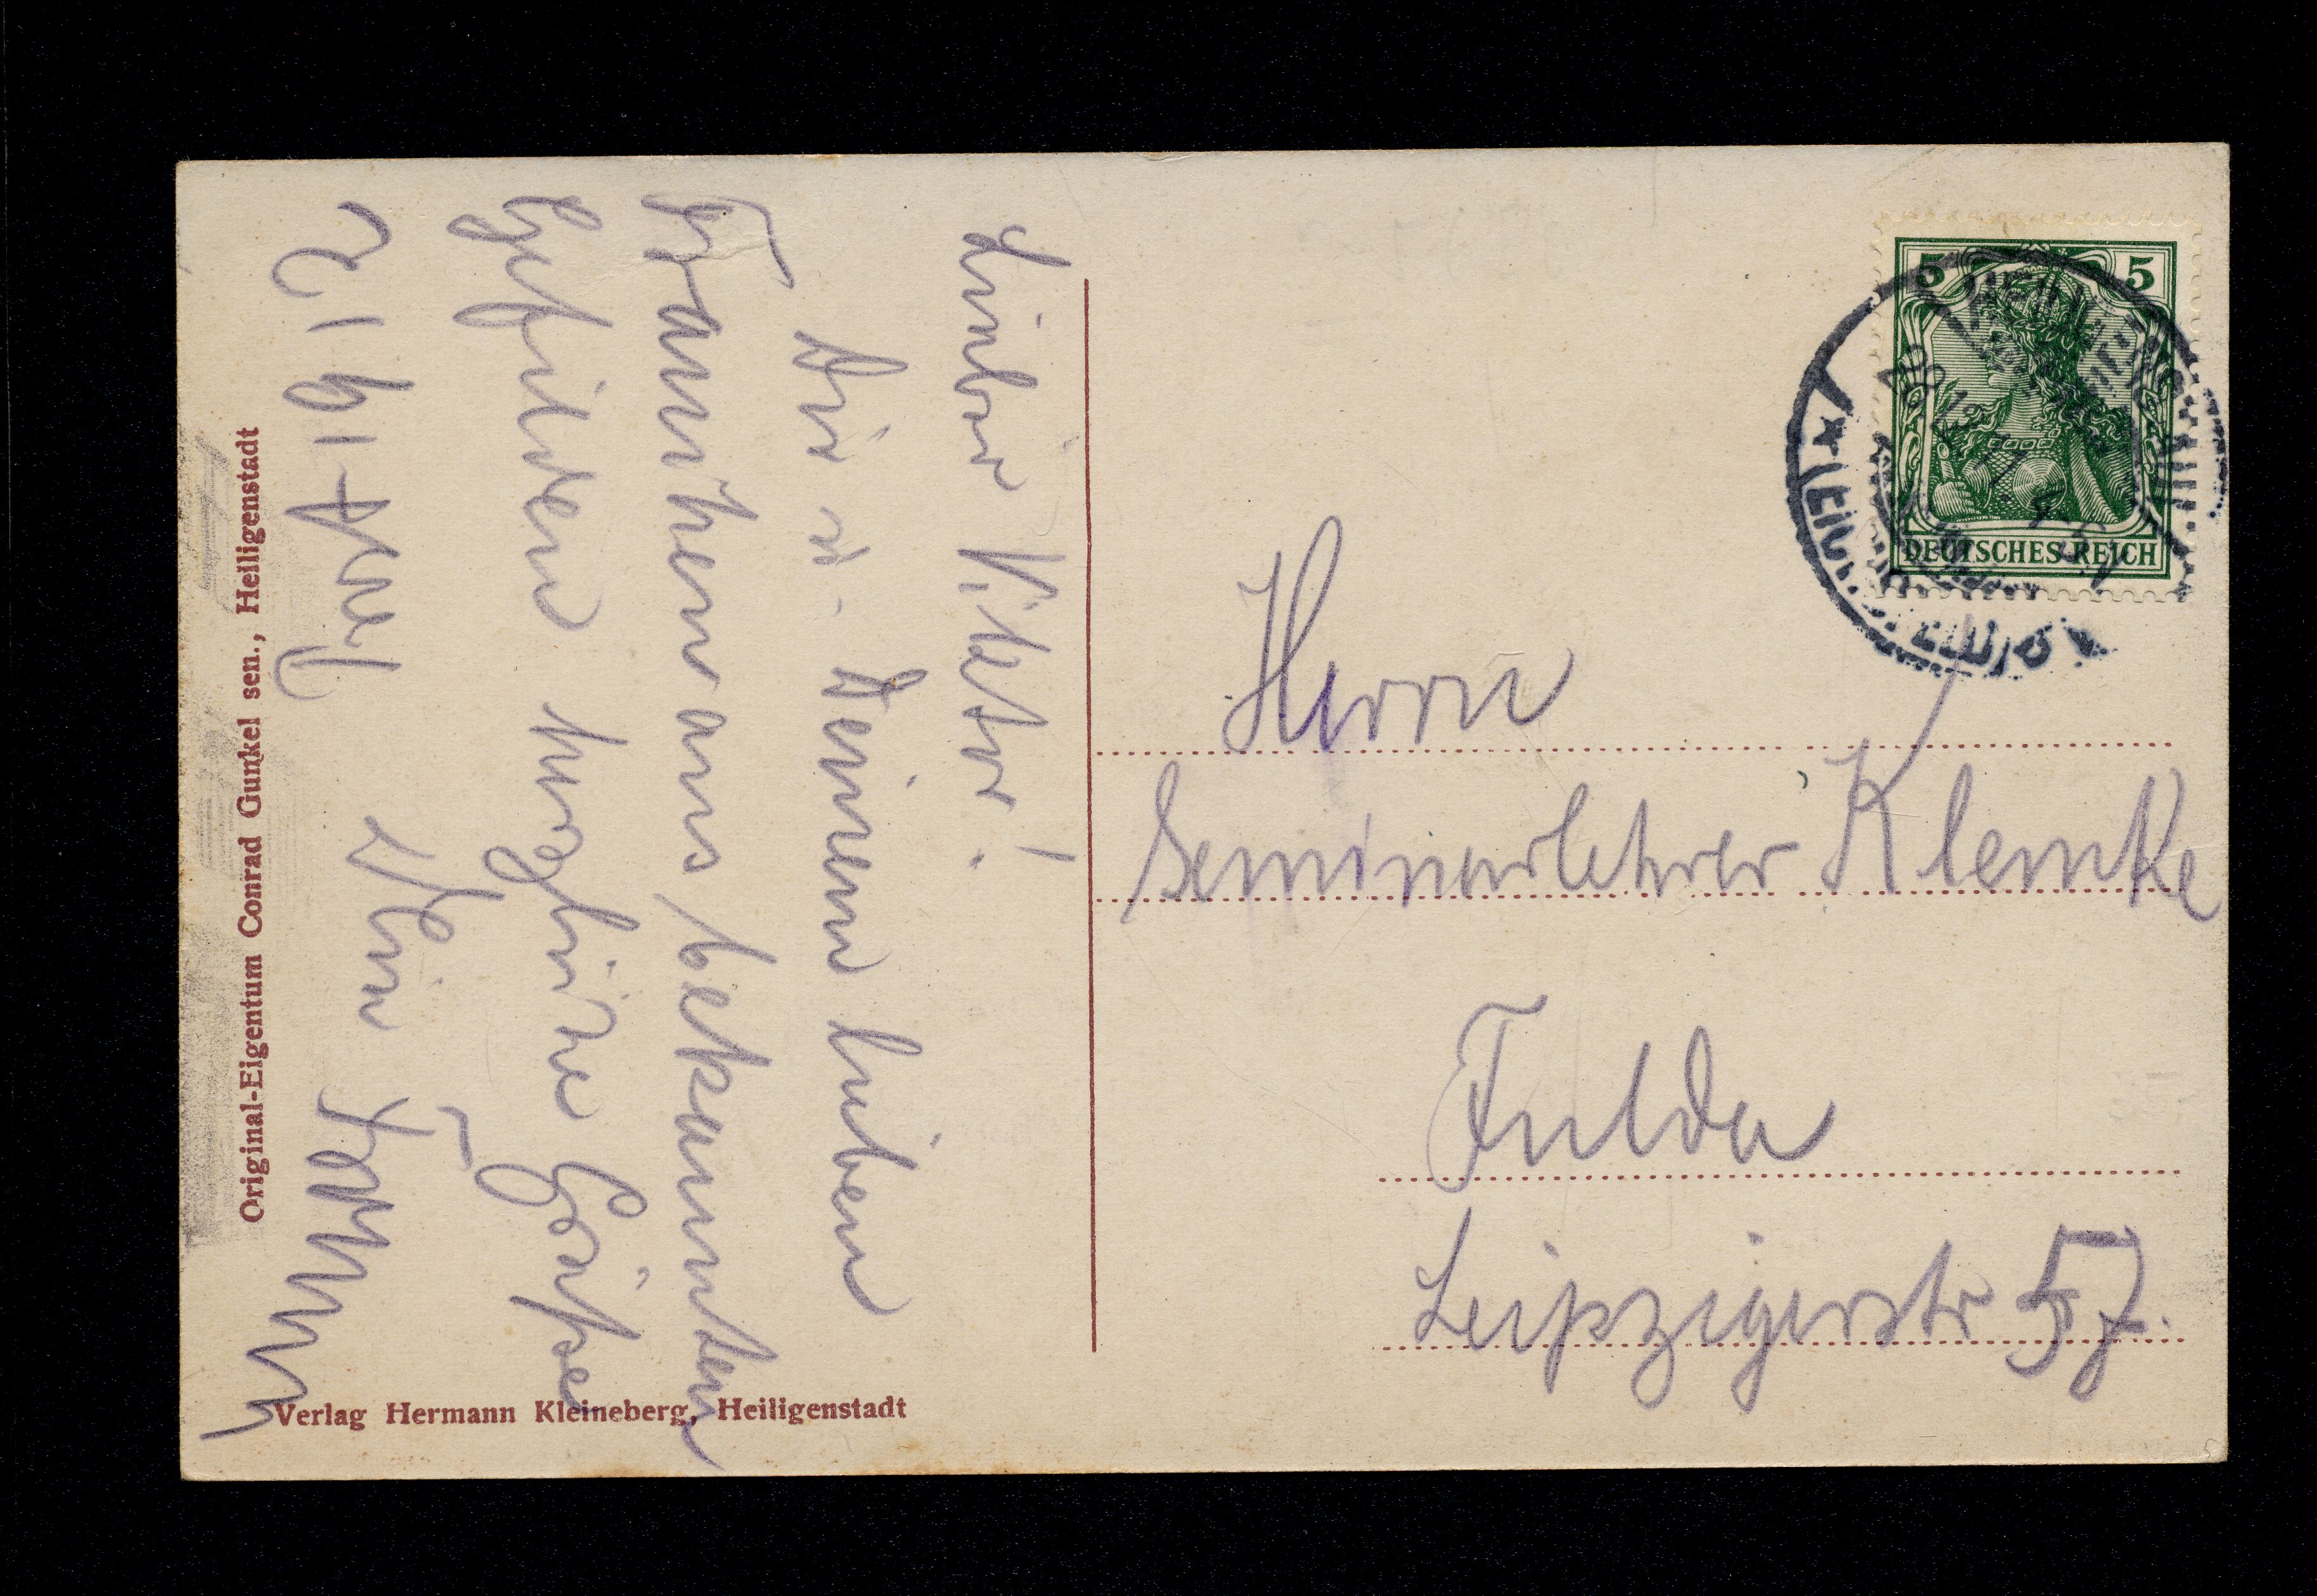 Lieber Viktor!
Dir u. Deinem lieben
Frauchen aus bekannten
Gefilden herzliche Grüße
Dein
Original-Eigentum Conrad Gunkel sen., Heiligenstadt
Verlag Hermann Kleineberg, Heiligenstadt
5 5
DEUTSCHES REICH
Herrn
Seminarlehrer Klemke
Fulda
Leipzigerstr 57.